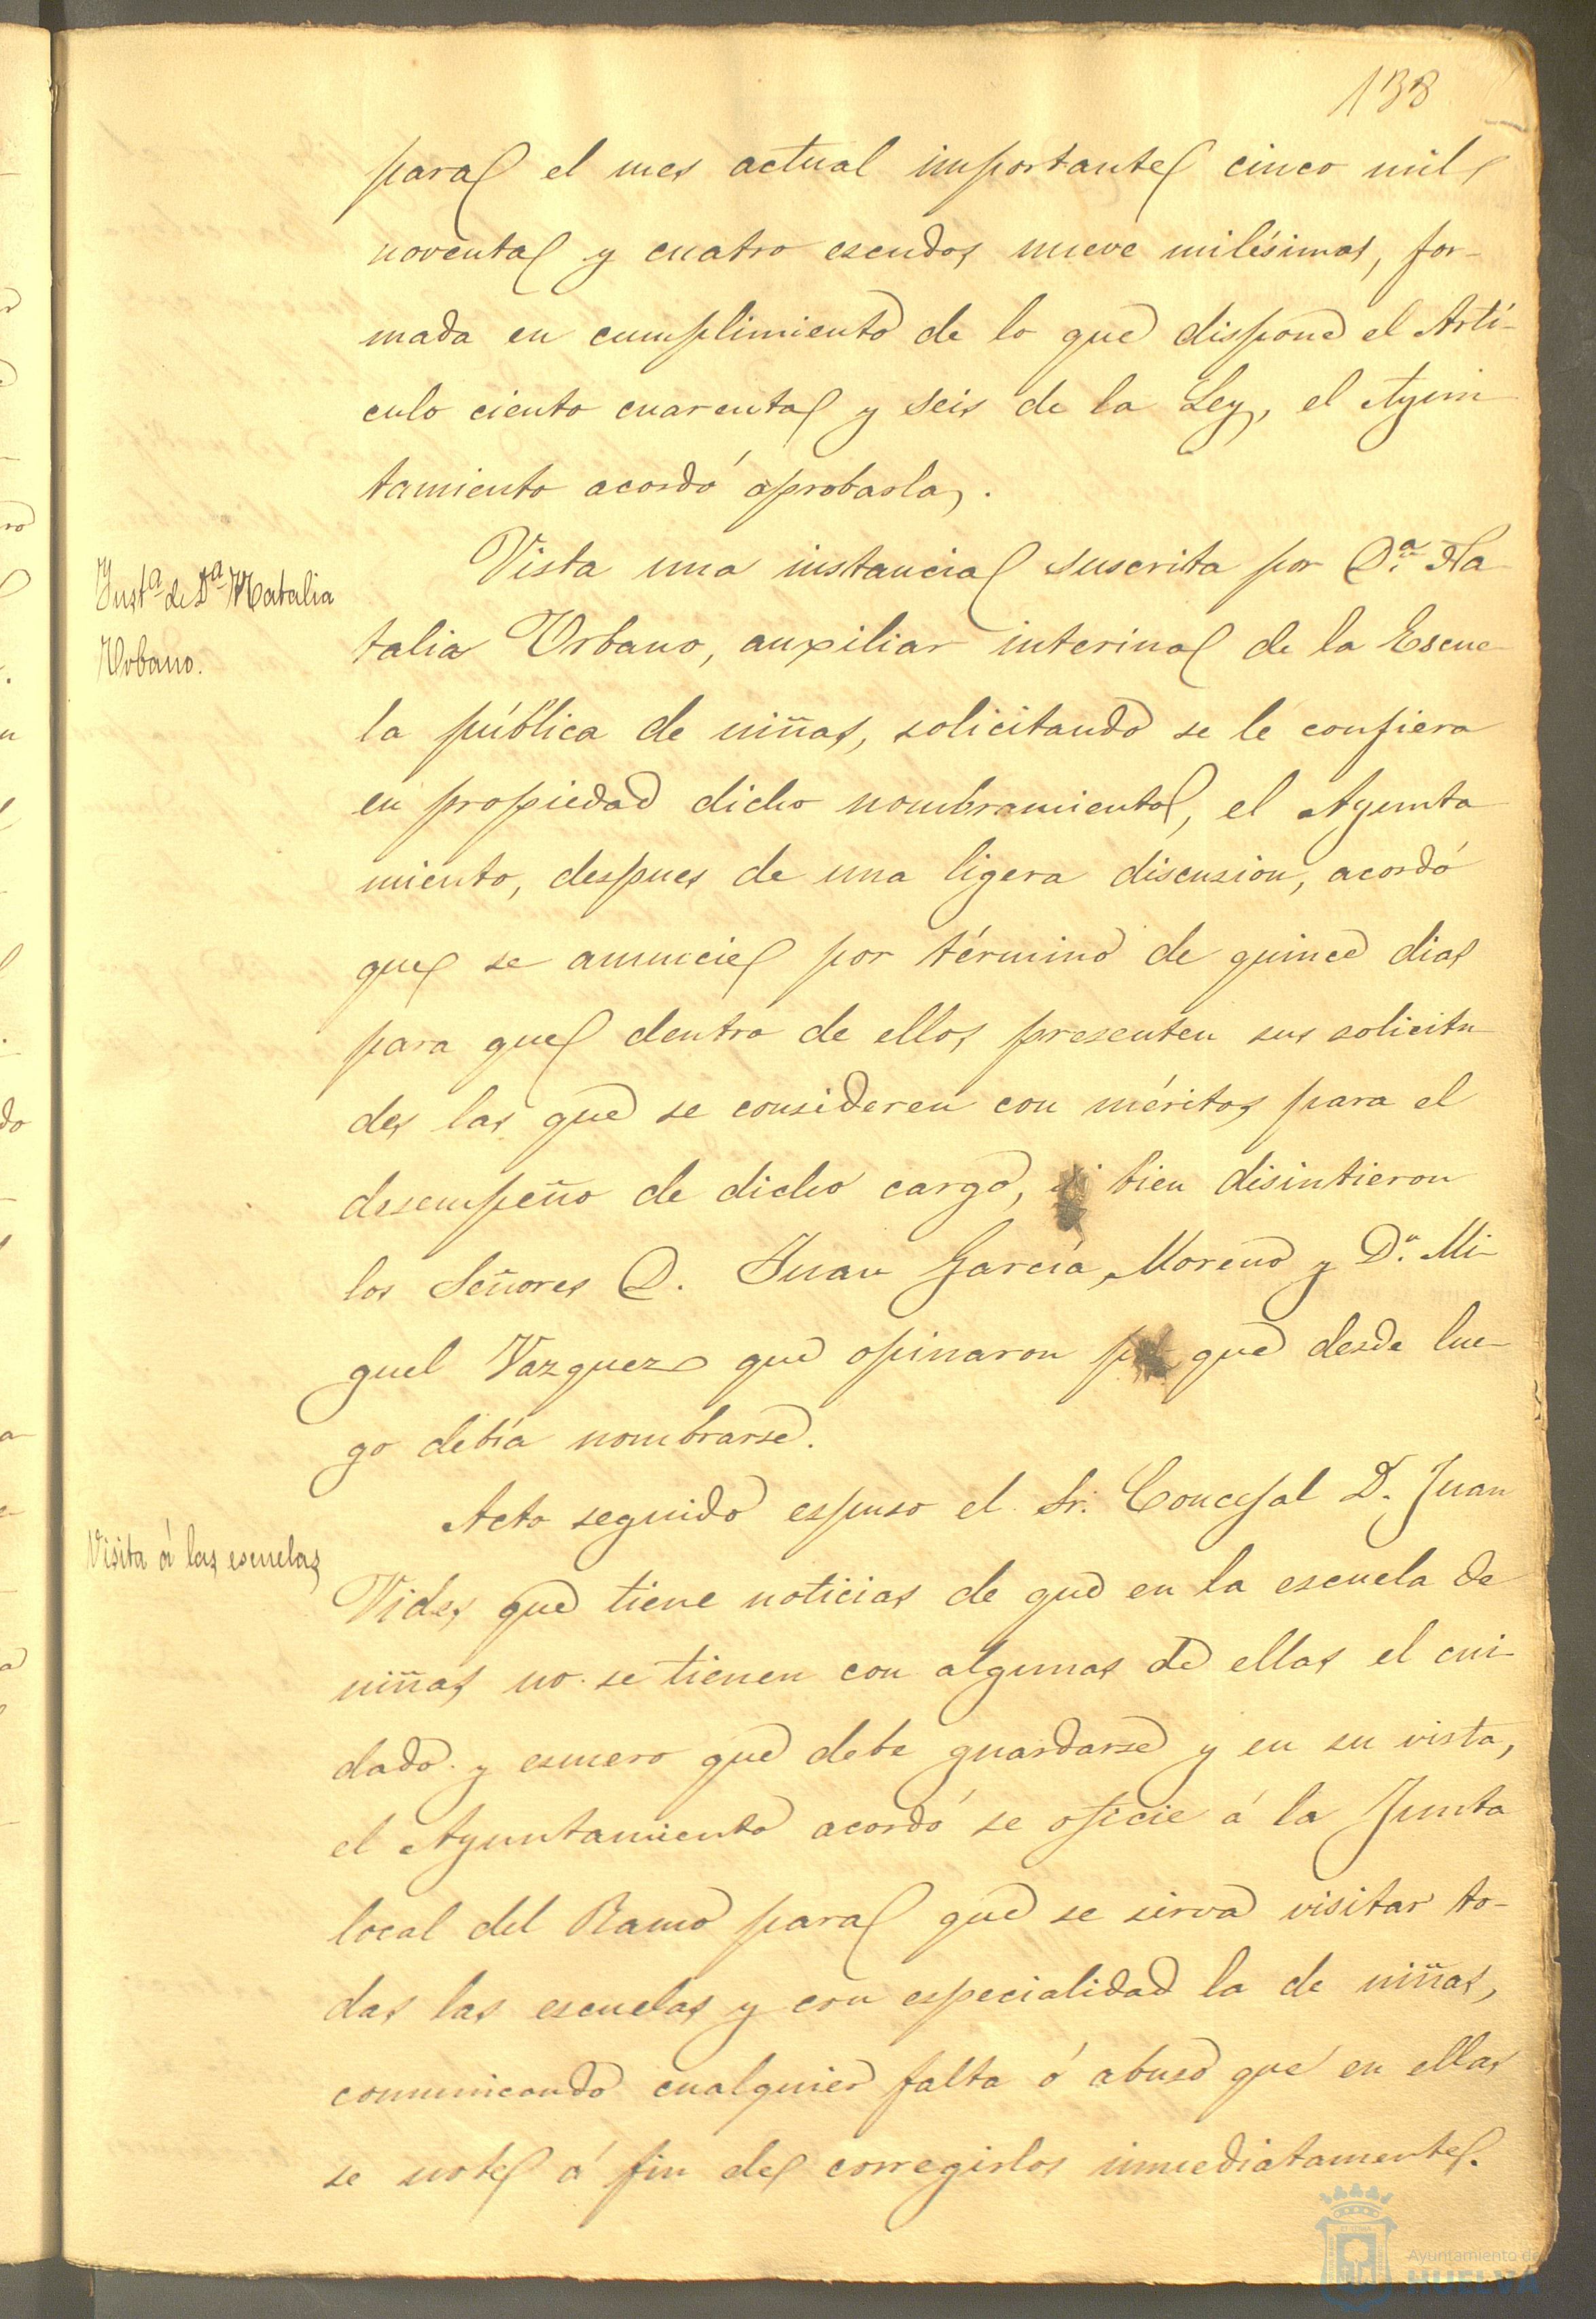 138
para el mes actual importante cinco mil
noventa y cuatro escudos nueve milésimas, for-
mada en cumplimiento de lo que dispone el Artí-
culo ciento cuarenta y seis de la Ley, el Ayun
tamiento acordó aprobarla.
Instª de Dª Natalia
Urbano.
Vista una instancia suscrita por D.ª Na
talia Urbano, auxiliar interina de la Escue-
la pública de niñas, solicitando se le confiera
en propiedad dicho nombramiento, el Ayunta
miento, despues de una ligera discusion, acordó
que se anuncie por término de quince dias
para que dentro de ellos presenten sus solicitu
des las que se consideren con méritos para el
desempeño de dicho cargo, si bien disintieron
los Señores D. Juan García Moreno y D.n Mi-
guel Vazquez que opinaron que desde lue-
go debía nombrarse.
Visita á las escuelas
Acto seguido espuso el Sr. Concejal D. Juan
Vides que tiene noticias de que en la escuela de
niñas no se tienen con algunas de ellas el cui-
dado y esmero que debe guardarse y en su vista,
el Ayuntamiento acordó se oficie á la Junta
local del Ramo para que se sirva visitar to-
das las escuelas y con especialidad la de niñas,
comunicando cualquier falta ó abuso que en ellas
se note á fin de corregirlos inmediatamente.
Ayuntamiento de
HUELVA